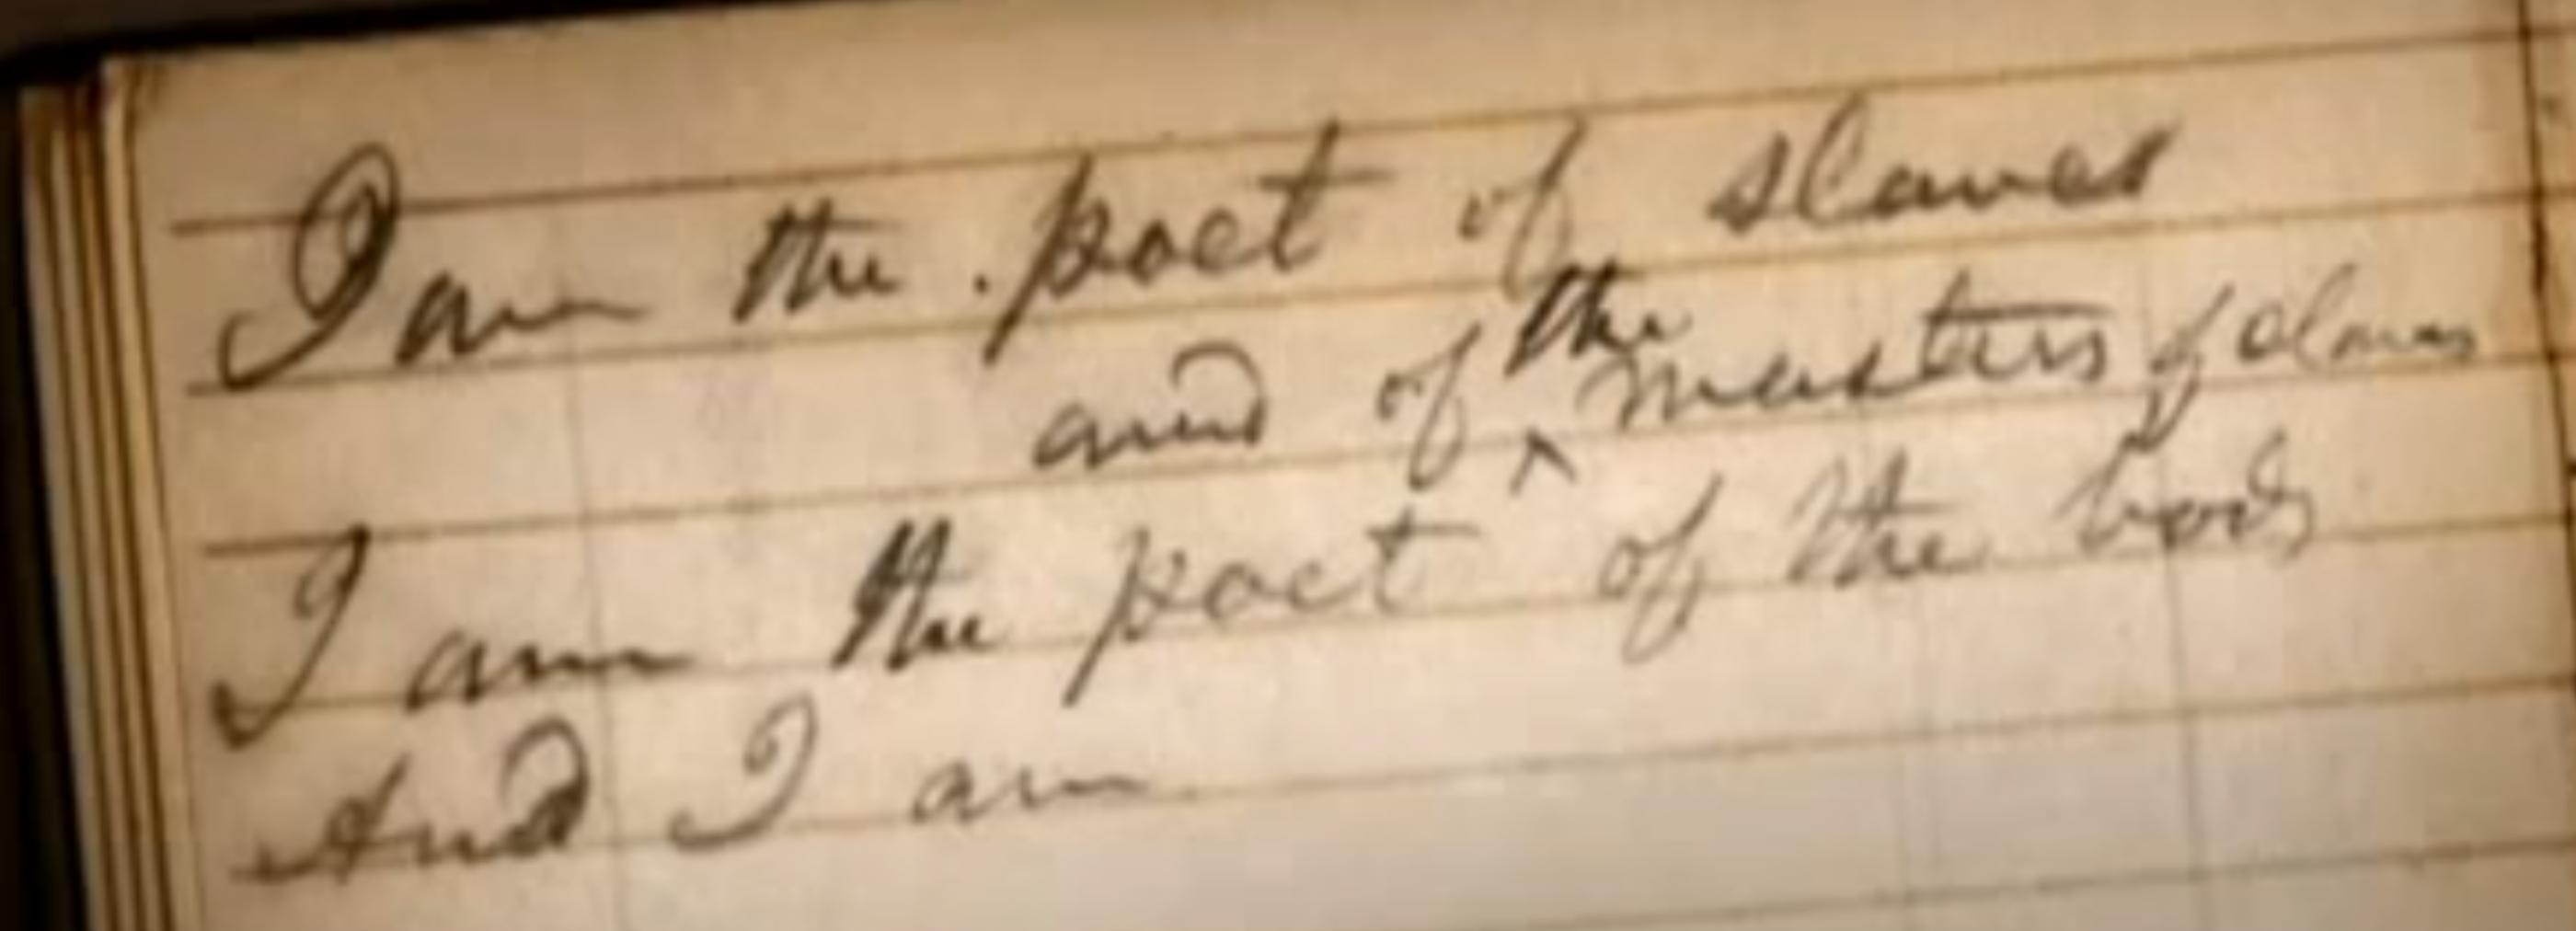 I am the poet of slaves
and of the masters of slaves
I am the poet of the body
And I am